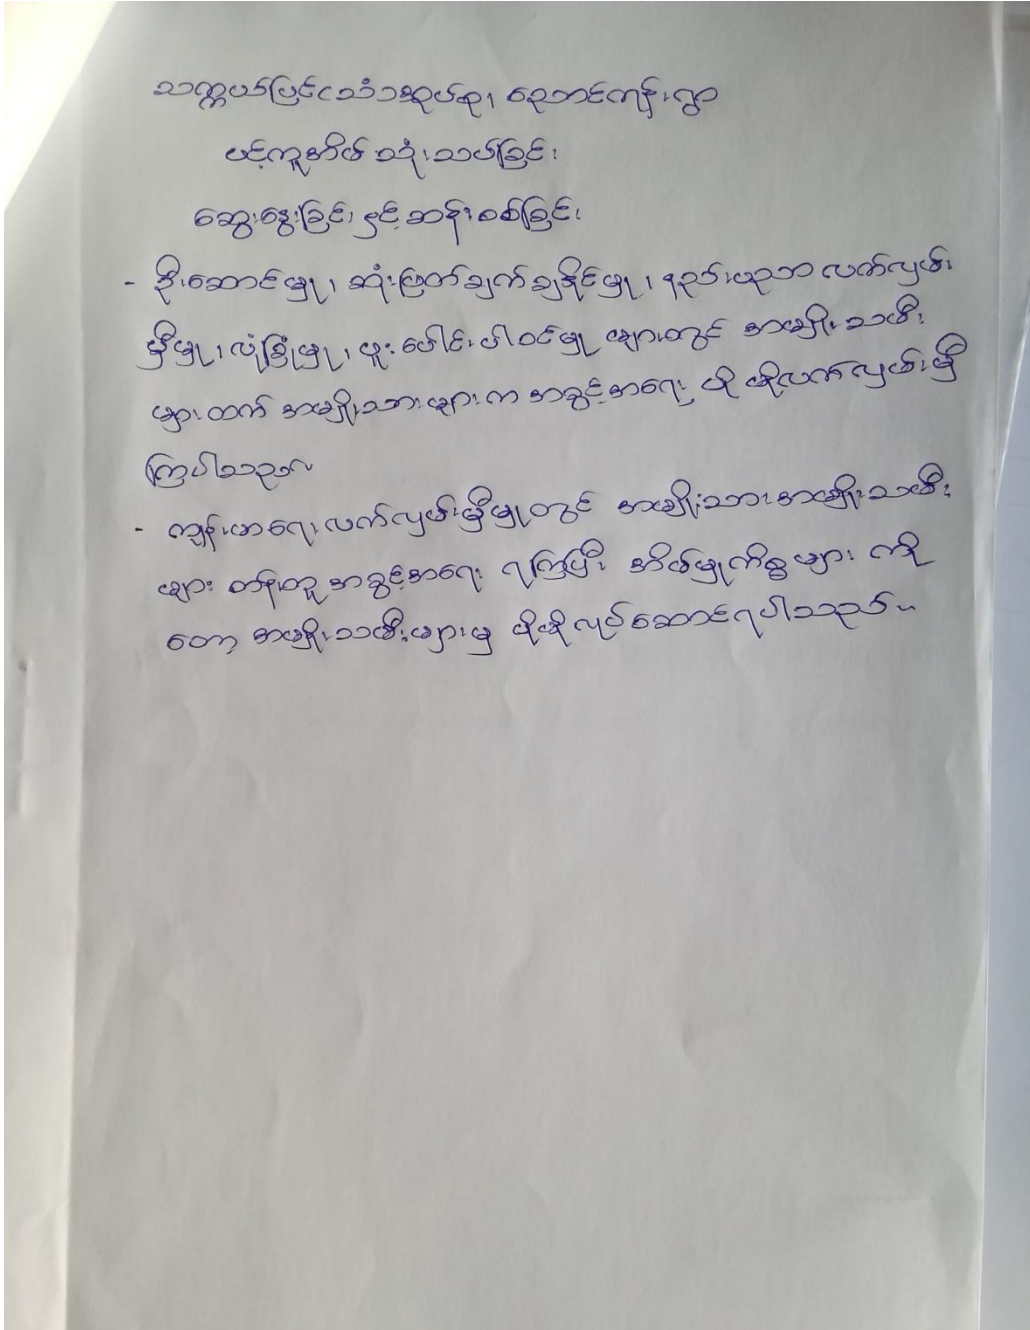 သက္ကယ်ပြင်ငသံသအုပ်စု၊ ညောင်ကုန်းရွာ
ပင့်ကူအိမ် သုံးသပ်ခြင်း
ဆွေးနွေးခြင်း နှင့် ဆန်းစစ်ခြင်း
- ဦးဆောင်မှု၊ ဆုံးဖြတ်ချက်ချနိုင်မှု၊ နည်းပညာ လက်လှမ်း
မှီမှု၊ လုံခြုံမှု၊ ပူးပေါင်းပါဝင်မှု များတွင် အမျိုးသမီး
များထက် အမျိုးသားများက အခွင့်အရေး ပို မိုလက်လှမ်းမှီ
ကြပါသည်။
- ကျန်းမာရေးလက်လှမ်းမှီမှုတွင် အမျိုးသားအမျိုးသမီး
များ တန်းတူ အခွင့်အရေး ရကြပြီး အိမ်မှုကိစ္စများ ကို
တော့ အမျိုးသမီးများမှ ပိုမိုလုပ်ဆောင်ရပါသည်။